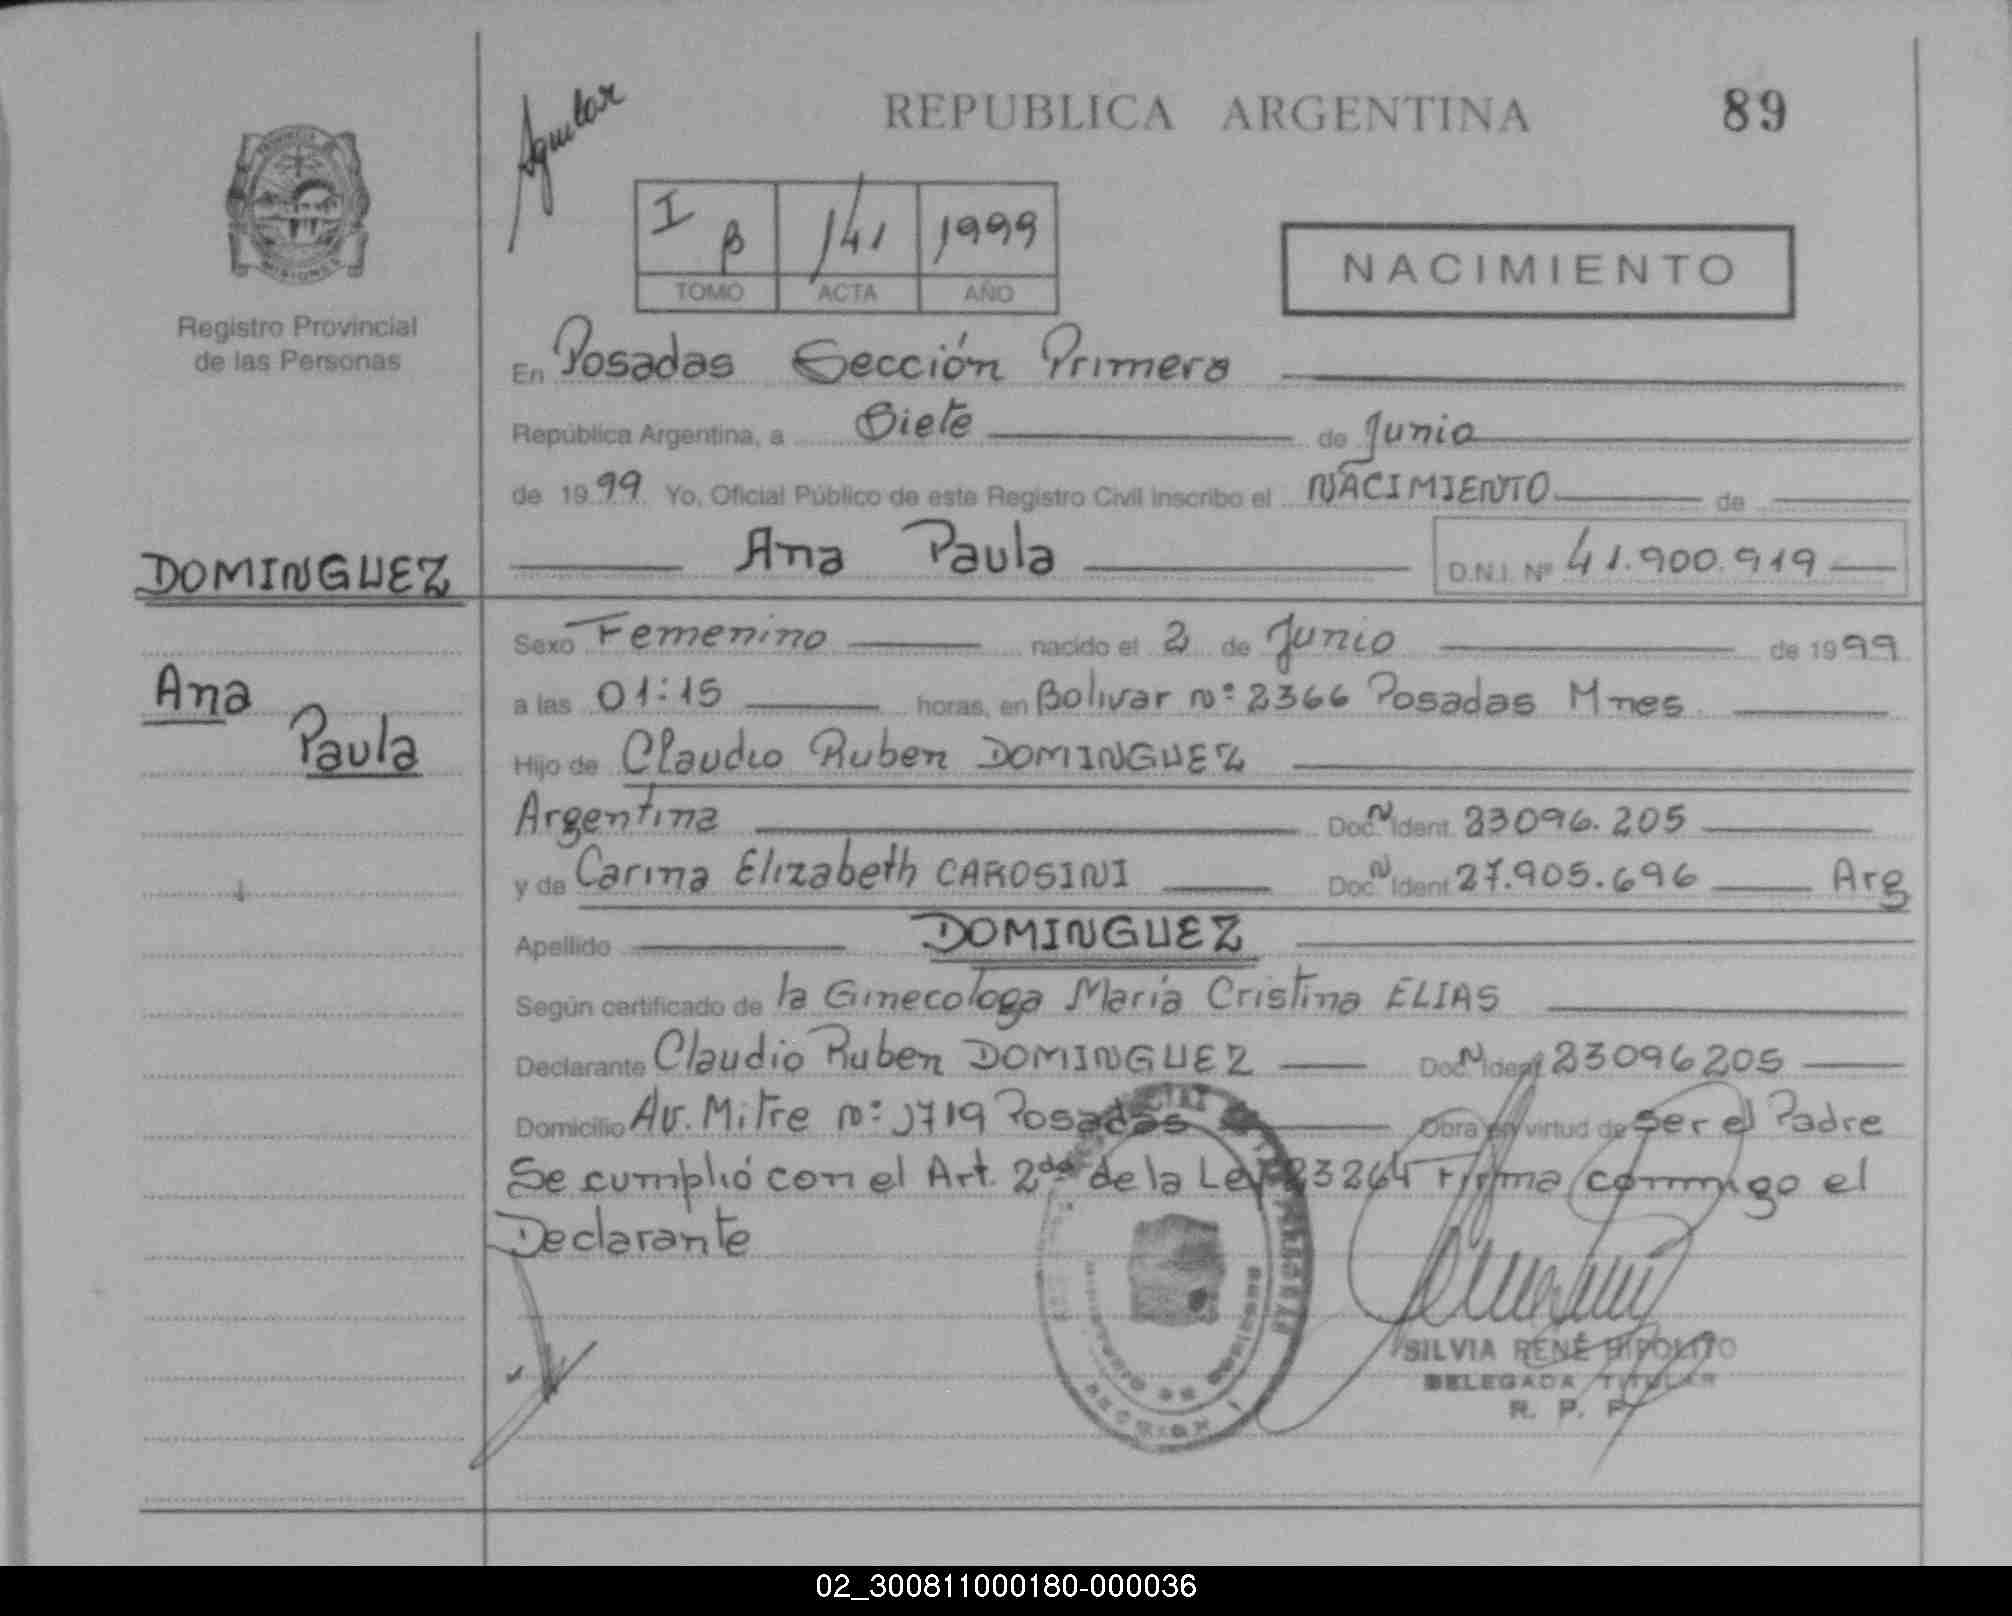 Aguilar
REPUBLICA ARGENTINA 89
PROVINCIA DE
MISIONES
Registro Provincial
de las Personas
I B 141 1999
TOMO ACTA AÑO
NACIMIENTO
En Posadas Sección Primera
República Argentina, a Siete de Junio
de 1999 Yo, Oficial Público de este Registro Civil inscribo el NACIMIENTO de
Ana Paula D.N.I. Nº 41.900.919
DOMINGUEZ
Ana
Paula
Sexo Femenino nacido el 2 de Junio de 1999
a las 01:15 horas, en Bolivar nº: 2366 Posadas Mnes
Hijo de Claudio Ruben DOMINGUEZ
Argentina Doc. N Ident. 23096.205
y de Carina Elizabeth CAROSINI Doc. N Ident. 27.905.696 Arg
Apellido DOMINGUEZ
Según certificado de la Ginecologa Maria Cristina ELIAS
Declarante Claudio Ruben DOMINGUEZ Doc. N Ident 23096205
Domicilio Av. Mitre nº: 1719 Posadas Obra en virtud de ser el Padre
Se cumplió con el Art. 2do de la Ley 23264 Firma conmigo el
Declarante
SILVIA RENÉ HIPOLITO
DELEGADA TITULAR
R. P. P.
02_300811000180-000036